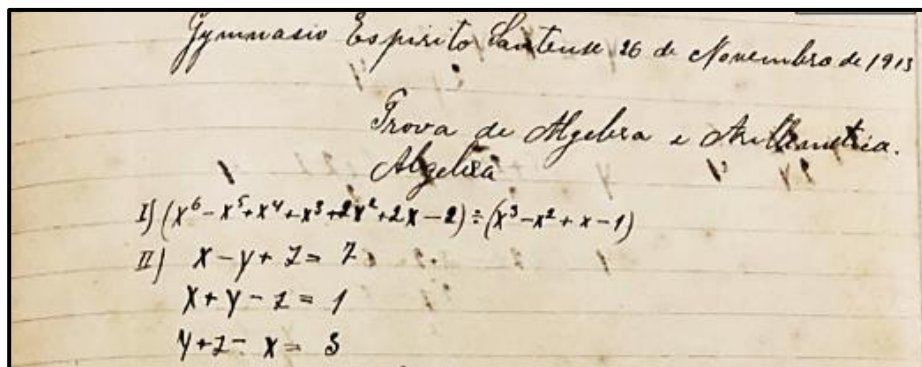 Gymnasio Espirito Santense 26 de Novembro de 1913
Prova de Algebra e Arithmetica.
Algebra
I) (x⁶ - x⁵ + x⁴ + x³ + 2x² + 2x - 2) ÷ (x³ - x² + x - 1)
II) x - y + z = 7
x + y - z = 1
y + z - x = 3